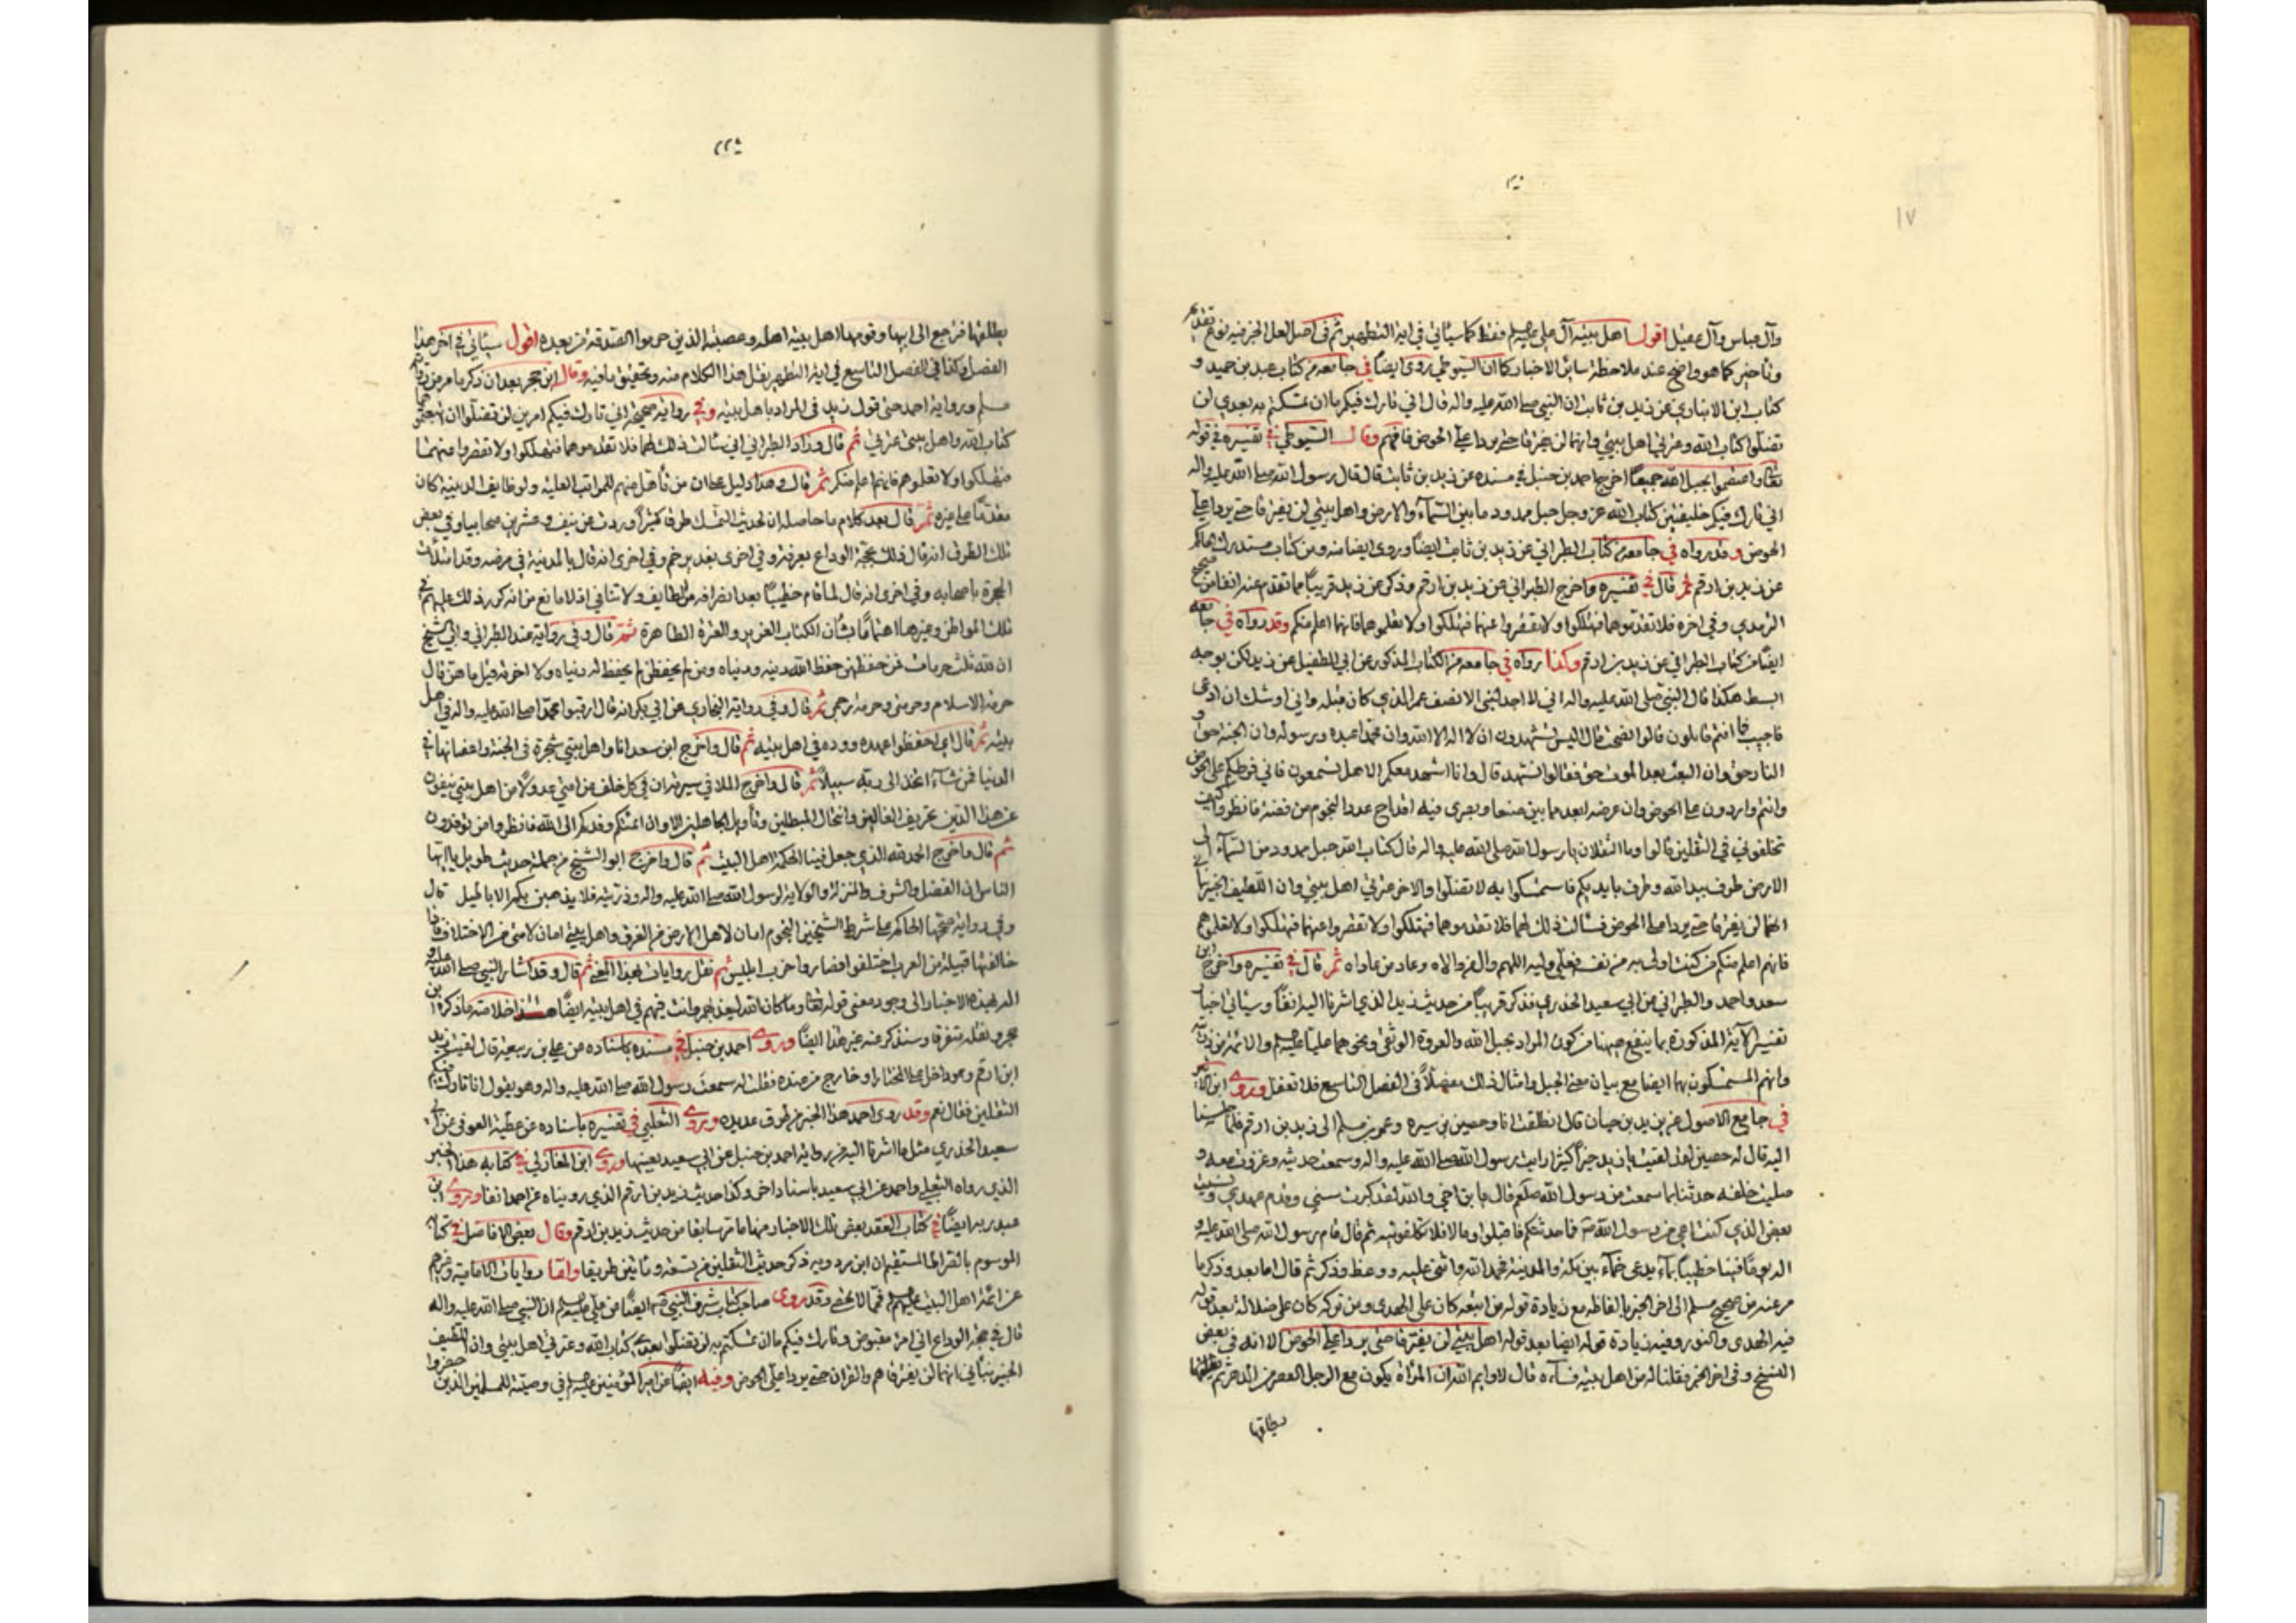 ١٧
وآل عباس وآل عقيل اقول اهل بيته آل علي عليهم فقط كما سيأتي في اية التطهير ثم في اصل هذا الخبر فيه نوع تقديم
وتأخير كما هو واضح عند ملاحظة سائر الاخبار كما ان السيوطي روى ايضا في جامعه من كتاب عبد بن حميد و
كتاب ابن الانباري عن زيد بن ثابت ان النبي صلى الله عليه واله قال اني تارك فيكم ما ان تمسكتم به بعدي لن
تضلوا كتاب الله وعترتي اهل بيتي وانهما لن يفترقا حتى يردا علي الحوض فافهم وقال السيوطي في تفسيره في قوله
تعالى واعتصموا بحبل الله جميعا اخرج احمد بن حنبل في مسنده عن زيد بن ثابت قال قال رسول الله صلى الله عليه واله
اني تارك فيكم خليفتين كتاب الله عز وجل حبل ممدود ما بين السماء والارض واهل بيتي لن يفترقا حتى يردا علي
الحوض وقد رواه في جامعه من كتاب الطبراني عن زيد بن ثابت ايضا وروى ايضا منه ومن كتاب مستدرك الحاكم
عن زيد بن ارقم ثم قال في تفسيره واخرج الطبراني عن زيد بن ارقم وذكر عن زيد قريبا مما تقدم عنه انفا من صحيح
الترمذي وفي اخره فلا تقدموهما فتهلكوا ولا تقصروا عنهما فتهلكوا ولا تعلموهما فانهما اعلم منكم وقد رواه في جامعه
ايضا من كتاب الطبراني عن زيد بن ارقم وكذا رواه في جامعه من الكتاب المذكور عن ابي الطفيل عن زيد لكن بوجه
ابسط هكذا قال النبي صلى الله عليه واله اني لا اجد لنبي الا نصف عمر الذي كان قبله واني اوشك ان ادعى
فاجيب فما انتم قائلون قالوا نصحت قال اليس تشهدون ان لا اله الا الله وان محمدا عبده ورسوله وان الجنة حق و
النار حق وان البعث بعد الموت حق فقالوا نشهد قال وانا اشهد معكم الا هل تسمعون فاني فرطكم على الحوض
وانتم واردون علي الحوض وان عرضه ابعد ما بين صنعا وبصرى فيه اقداح عدد النجوم من فضة فانظروا كيف
تخلفوني في الثقلين قالوا وما الثقلان يا رسول الله صلى الله عليه واله قال كتاب الله حبل ممدود من السماء الى
الارض طرف بيد الله وطرف بايديكم فاستمسكوا به لا تضلوا والاخر عترتي اهل بيتي وان اللطيف الخبير نبأني
انهما لن يفترقا حتى يردا علي الحوض فسألت ذلك لهما فلا تقدموهما فتهلكوا ولا تقصروا عنهما فتهلكوا ولا تعلموهم
فانهم اعلم منكم من كنت اولى به من نفسه فعلي وليه اللهم وال من والاه وعاد من عاداه ثم قال في تفسيره واخرج ابن
سعد واحمد والطبراني عن ابي سعيد الخدري فذكر قريبا من حديث زيد الذي اشرنا اليه انفا وسيأتي اخبار
تفسير الآية المذكورة بما ينفع هيهنا من كون المراد بحبل الله والعروة الوثقى ونحوهما عليا عليه السلم والائمة من ذريته
وانهم المستمسكون بها ايضا مع بيان معنى الحبل وامثال ذلك مفصلا في الفصل التاسع فلا تغفل وروى ابن الاثير
في جامع الاصول عن يزيد بن حيان قال انطلقت انا وحصين بن سبره وعمر بن مسلم الى زيد بن ارقم فلما جلسنا
اليه قال له حصين لقد لقيت يا زيد خيرا كثيرا رايت رسول الله صلى الله عليه واله وسمعت حديثه وغزوت معه و
صليت خلفه حدثنا بما سمعت من رسول الله صلعم قال يا بن اخي والله لقد كبرت سني وقدم عهدي ونسيت
بعض الذي كنت اعي من رسول الله ص فما حدثتكم فاقبلوا وما لا فلا تكلفونيه ثم قال قام رسول الله صلى الله عليه و
اله يوما فينا خطيبا بماء يدعى خماء بين مكة والمدينة فحمد الله واثنى عليه ووعظ وذكر ثم قال اما بعد وذكر ما
مر عنه من صحيح مسلم الى اخر الخبر بالفاظه مع زيادة قوله من اتبعه كان على الهدى ومن تركه كان على ضلالة بعد قوله
فيه الهدى والنور وفيه زيادة قوله ايضا بعد قوله اهل بيتي لن يفترقا حتى يردا علي الحوض الا انه في بعض
النسخ وفي اخر الخبر فقلنا له من اهل بيته نساءه قال لا وايم الله ان المرأة يكون مع الرجل العصر من الدهر ثم يطلقها
يطلقها
٢٢٥
يطلقها فترجع الى ابيها وقومها اهل بيته اهله وعصبته الذين حرموا الصدقة من بعده اقول سيأتي في اخر هذا
الفصل وكذا في الفصل التاسع في اية التطهير نقل هذا الكلام منه وتحقيق ما فيه وقال ابن حجر بعد ان ذكر ما مر من رواية
مسلم ورواية احمد حتى قول زيد في المراد باهل بيته وفي رواية صحيحة اني تارك فيكم امرين لن تضلوا ان تبعتموهما
كتاب الله واهل بيتي عترتي ثم قال وزاد الطبراني اني سألت ذلك لهما فلا تقدموهما فتهلكوا ولا تقصروا عنهما
فتهلكوا ولا تعلموهم فانهم اعلم منكم ثم قال وهذا دليل على ان من تأهل منهم للمراتب العلية والوظايف الدينية كان
مقدما على غيره ثم قال بعد كلام ما حاصله ان لحديث التمسك طرقا كثيرا وردت عن نيف وعشرين صحابيا وفي بعض
تلك الطرق انه قال ذلك بحجة الوداع بعرفة وفي اخرى بغدير خم وفي اخرى انه قال بالمدينة في مرضه وقد امتلأت
الحجرة باصحابه وفي اخرى انه قال لما قام خطيبا بعد انصرافه من الطايف ولا تنافي اذ لا مانع من انه كرر ذلك عليهم في
تلك المواطن وغيرها اهتماما بشأن الكتاب العزيز والعترة الطاهرة ثم قال وفي رواية عند الطبراني وابي الشيخ
ان لله ثلث حرمات فمن حفظهن حفظ الله دينه ودنياه ومن لم يحفظهن لم يحفظ له دنياه ولا اخرته قيل ما هن قال
حرمة الاسلام وحرمتي وحرمة رحمي ثم قال وفي رواية البخاري عن ابي بكر انه قال ارقبوا محمدا صلى الله عليه واله في اهل
بيته ثم قال اي احفظوا عهده ووده في اهل بيته ثم قال واخرج ابن سعد انا واهل بيتي شجرة في الجنة واغصانها في
الدنيا فمن شاء اتخذ الى ربه سبيلا ثم قال واخرج الملا في سيرته ان في كل خلف من امتي عدولا من اهل بيتي ينفون
عن هذا الدين تحريف الغالين وانتحال المبطلين وتأويل الجاهلين الا وان ائمتكم وفدكم الى الله فانظروا من توفدون
ثم قال واخرج الحمد لله الذي جعل فينا الحكمة اهل البيت ثم قال واخرج ابو الشيخ من جملة حديث طويل يا ايها
الناس ان الفضل والشرف والمنزلة والولاية لرسول الله صلى الله عليه واله وذريته فلا يذهبن بكم الاباطيل قال
وفي رواية صححها الحاكم على شرط الشيخين النجوم امان لاهل الارض من الغرق واهل بيتي امان لامتي من الاختلاف فاذا
خالفتها قبيلة من العرب اختلفوا فصاروا حزب ابليس ثم نقل روايات بهذا المعنى ثم قال وقد اشار النبي صلى الله عليه و
اله بهذه الاخبار الى وجود معنى قوله تعالى وما كان الله ليعذبهم وانت فيهم في اهل بيته ايضا هذا خلاصة ما ذكره ابن
حجر ونقله متفرقا وسنذكر عنه غير هذا ايضا وروى احمد بن حنبل في مسنده باسناده عن علي بن ربيعة قال لقيت زيد
ابن ارقم وهو داخل على المختار او خارج من عنده فقلت له سمعت رسول الله صلى الله عليه واله وهو يقول انا تارك فيكم
الثقلين فقال نعم وقد روى احمد هذا الخبر من طرق عديدة وروى الثعلبي في تفسيره باسناده عن عطية العوفي عن ابي
سعيد الخدري مثل ما اشرنا اليه من رواية احمد بن حنبل عن ابي سعيد بعينها وروى ابن المغازلي في كتابه هذا الخبر
الذي رواه الثعلبي واحمد عن ابي سعيد باسناد اخر وكذا حديث زيد بن ارقم الذي رويناه عن احمد انفا وروى ابن
عبد ربه ايضا في كتاب العقد بعض تلك الاخبار منها ما مر سابقا من حديث زيد بن ارقم وقال بعض الافاضل في كتابه
الموسوم بالصراط المستقيم ان ابن مردويه ذكر حديث الثقلين من تسعة وثمانين طريقا واما روايات الامامية وغيرهم
عن ائمة اهل البيت عليهم فمما لا يحصى وقد روى صاحب كتاب شرف النبي ص ايضا عن علي عليه السلم ان النبي صلى الله عليه واله
قال في حجة الوداع اني امرؤ مقبوض وتارك فيكم ما ان تمسكتم به لن تضلوا بعدي كتاب الله وعترتي اهل بيتي وان اللطيف
الخبير نبأني انهما لن يفترقا هم والقران حتى يردا علي الحوض وفيه ايضا عن امير المؤمنين عليه السلم في وصيته للمسلمين الذين حضروا